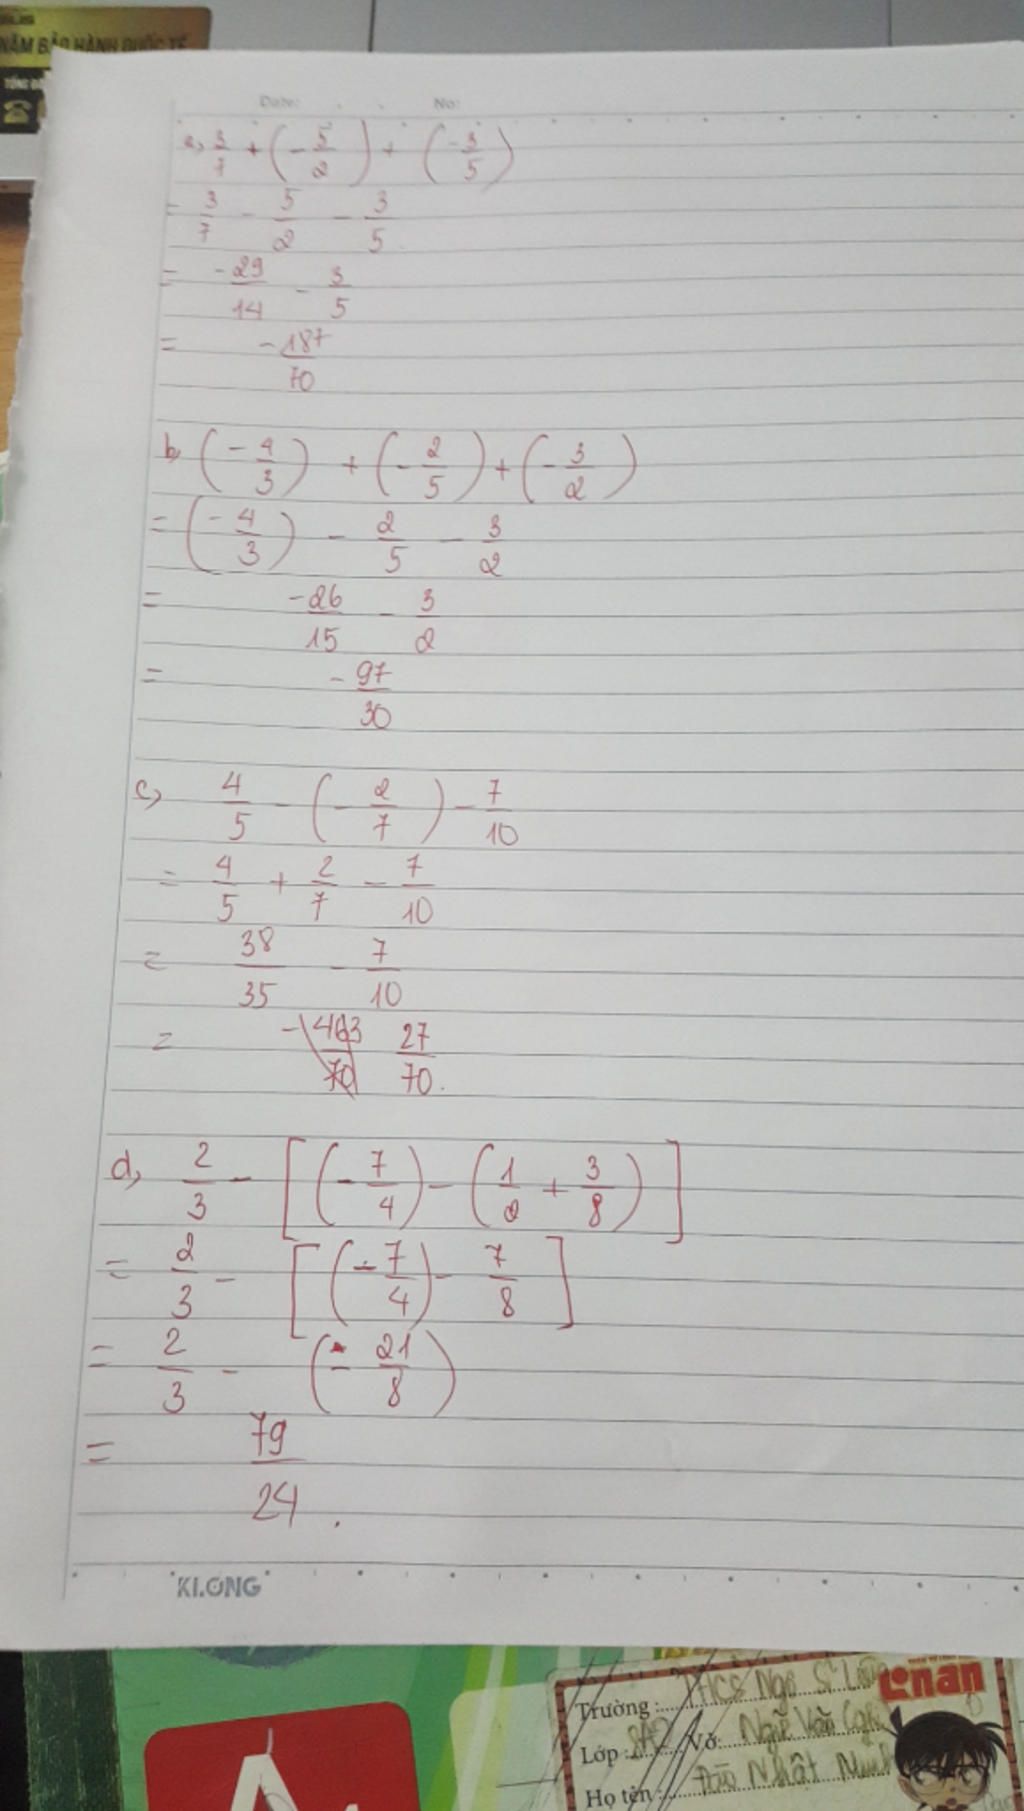 NĂM BẢO HÀNH QUỐC TẾ
Date: No:
a, 3/7 + (-5/2) + (-3/5)
= 3/7 - 5/2 - 3/5
= -29/14 - 3/5
= -187/70
b, (-4/3) + (-2/5) + (-3/2)
= (-4/3) - 2/5 - 3/2
= -26/15 - 3/2
= -97/30
c, 4/5 - (-2/7) - 7/10
= 4/5 + 2/7 - 7/10
= 38/35 - 7/10
= 27/70.
d, 2/3 - [(-7/4) - (1/2 + 3/8)]
= 2/3 - [(-7/4) - 7/8]
= 2/3 - (-21/8)
= 79/24.
KLONG
Trường: THCS Ngô Sĩ
Conan
Lớp: 8A2 Vở: Ngữ Văn
Họ tên: Đào Nhật